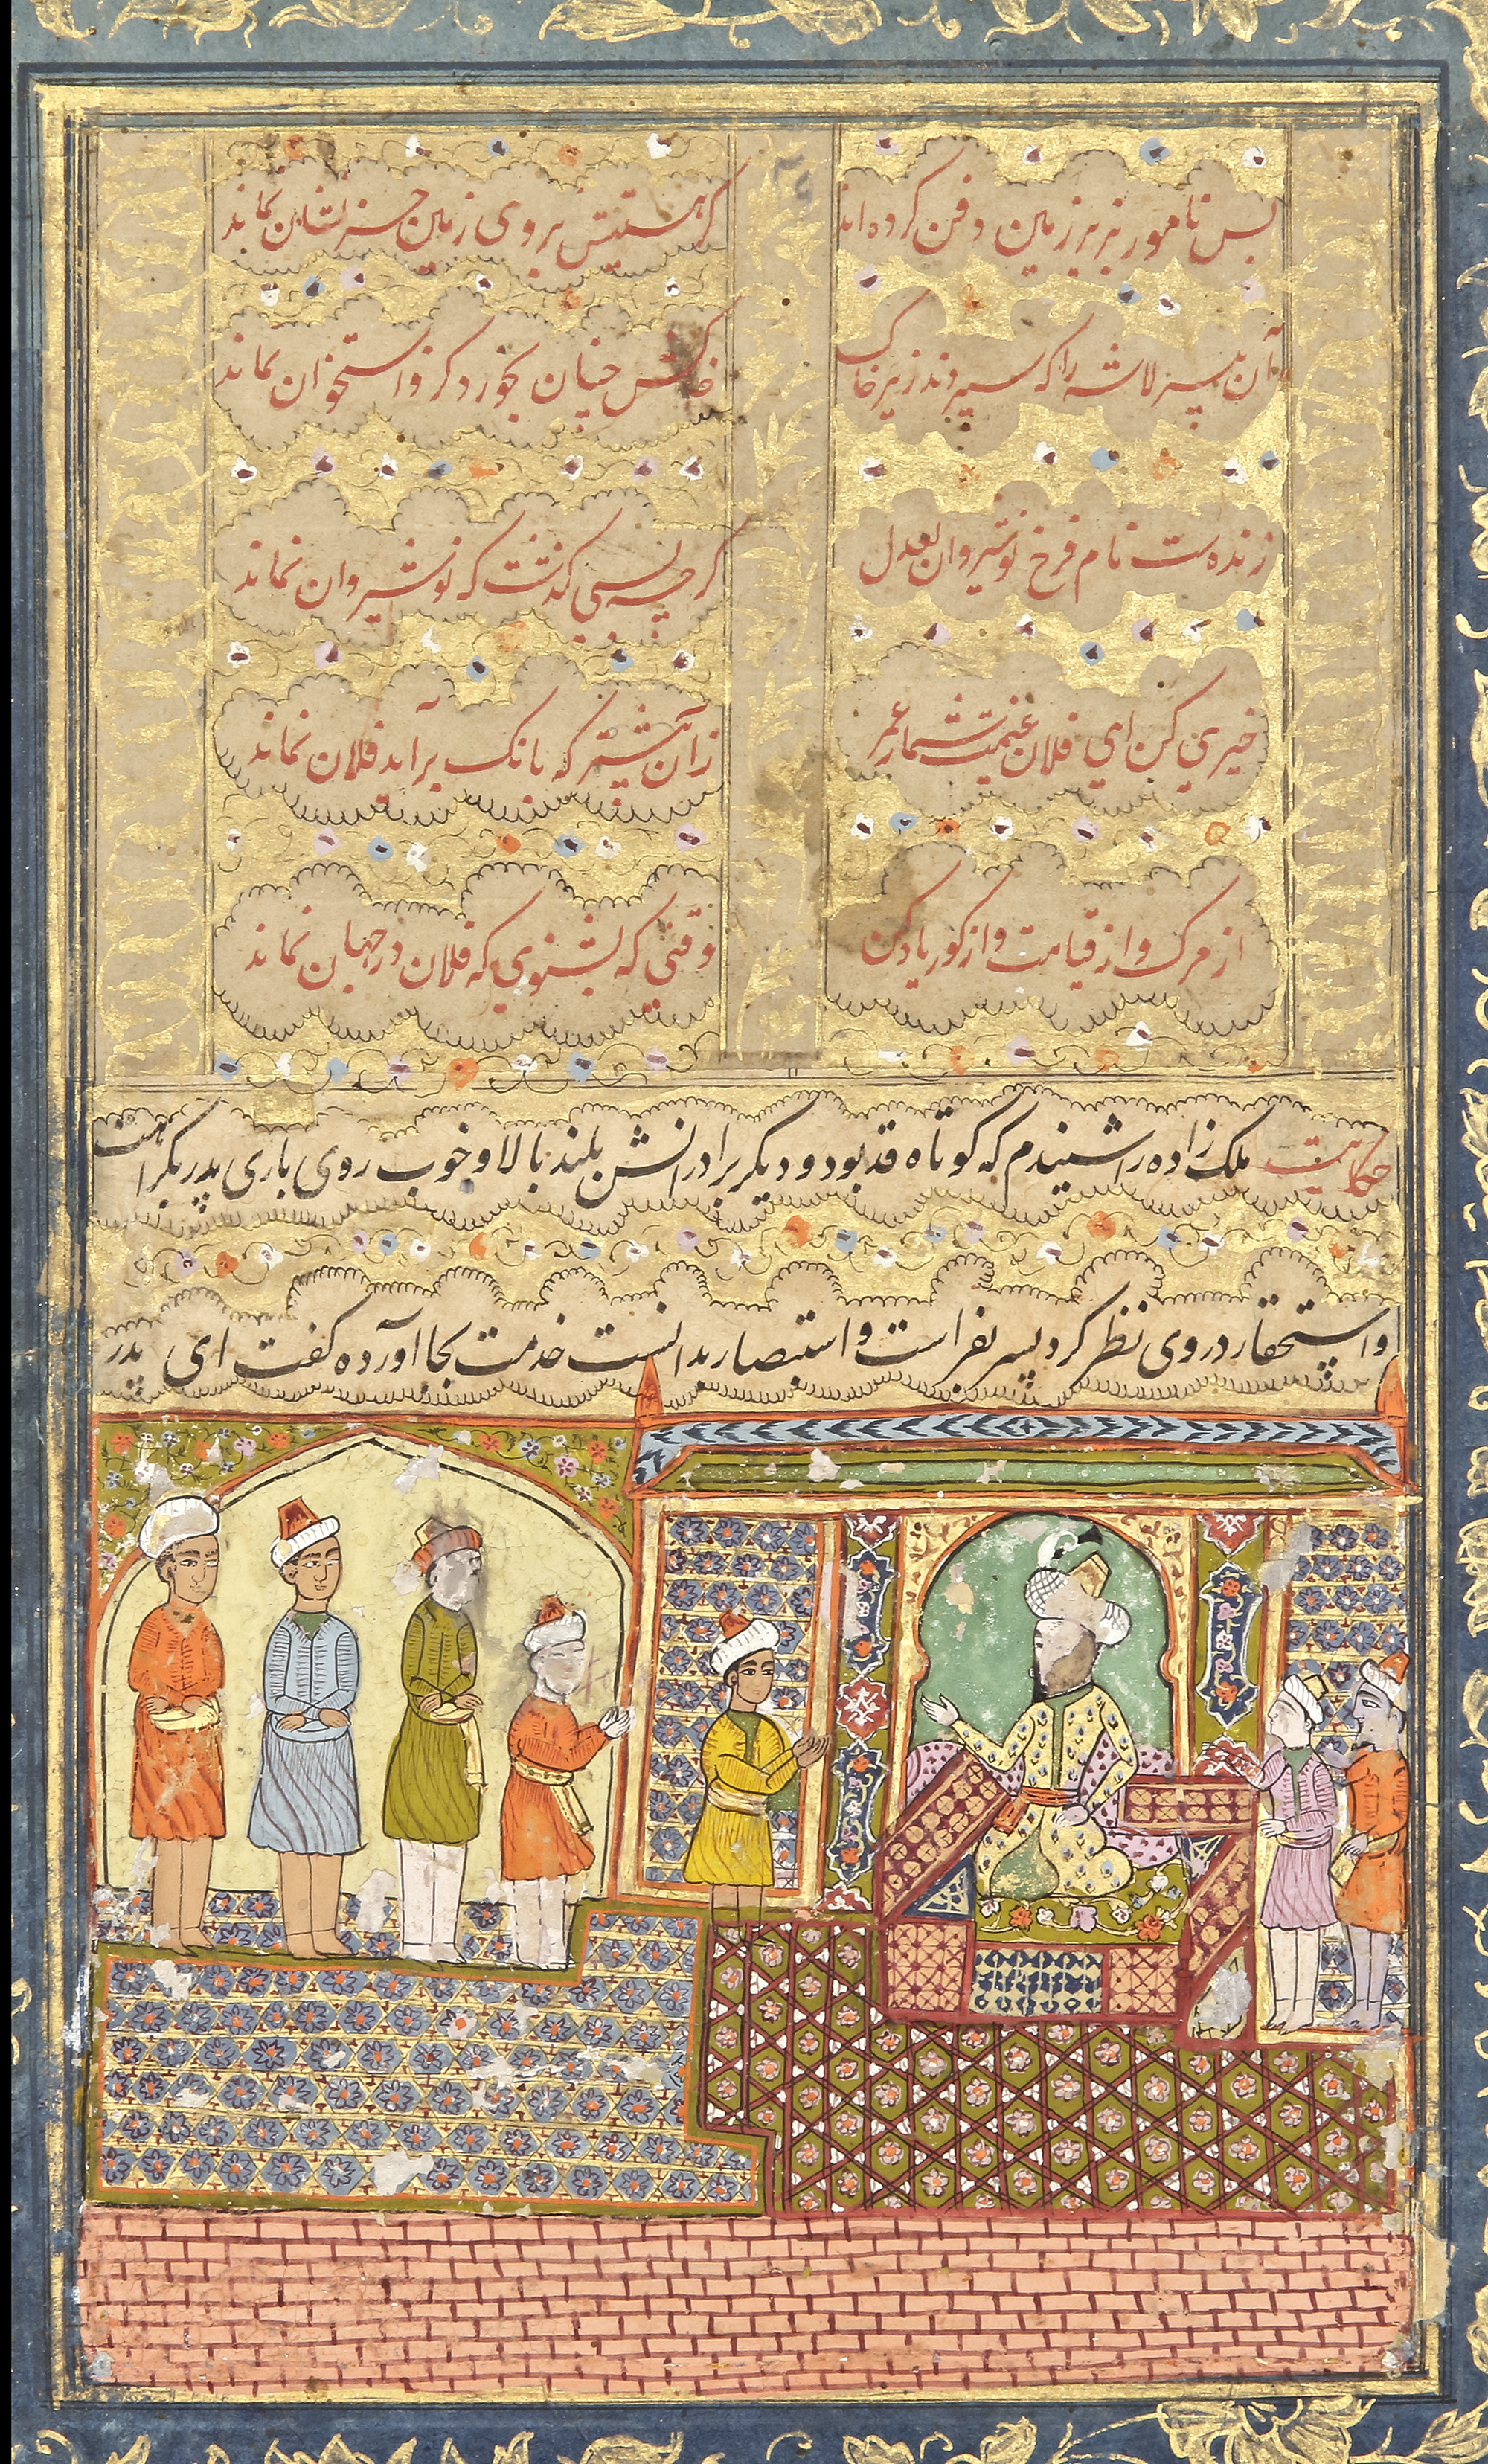 بس نامور بزیر زمین دفن کرده اند
کز هستیش بروی زمین بر نشان نماند
آن پیر لاشه را که سپردند زیر خاک
خاکش چنان بخورد کزو استخوان نماند
زنده ست نام فرخ نوشیروان بعدل
گرچه بسی گذشت که نوشیروان نماند
خیری کن ای فلان غنیمت شمار عمر
زان پیشتر که بانک برآید فلان نماند
از مرک و از قیامت و از کور یاد کن
وقتی که بشنوی که فلان در جهان نماند
حکایت ملک زاده را شنیدم که کوتاه قد بود و دیکر برادرانش بلند بالا و خوب روی باری پدر بکراهت
و استحقار در وی نظر کرد پسر بفراست و استبصار بدانست خدمت بجا آورده کفت ای پدر